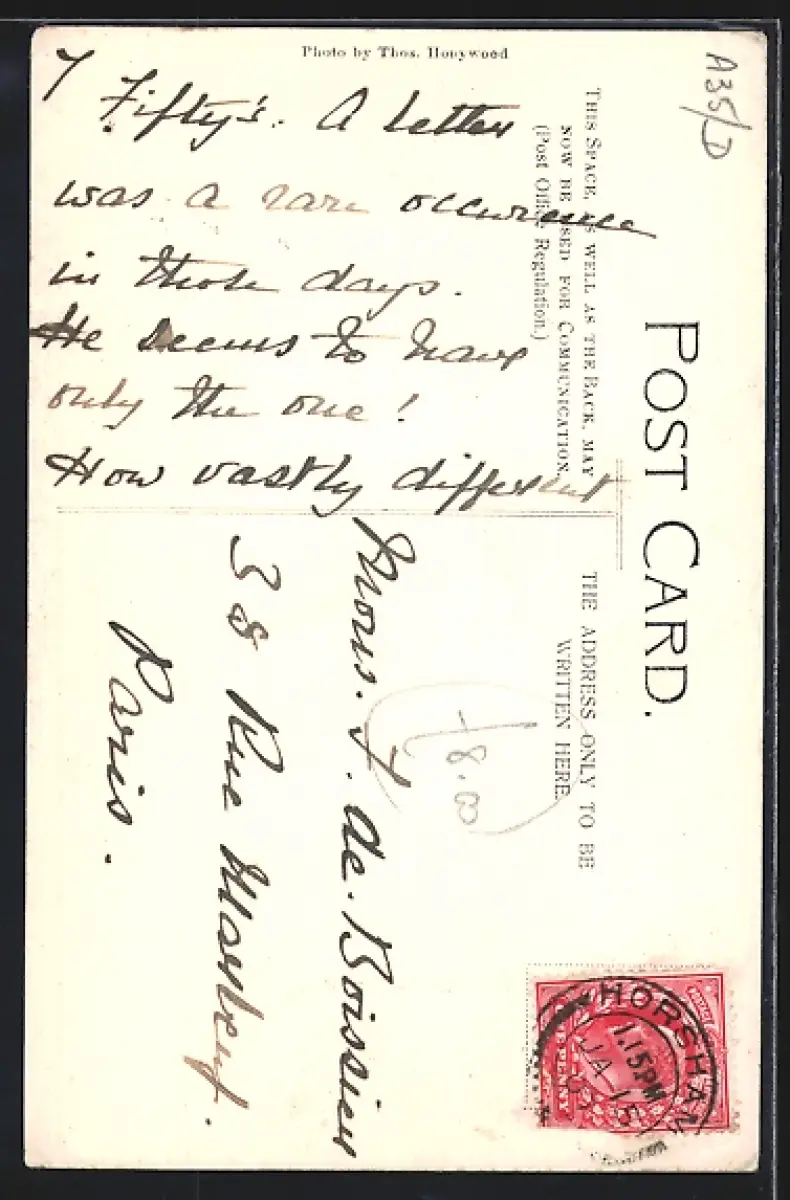 Photo by Thos. Honywood
A35/D
Fifty's. A letter
was a rare occurrence
in those days.
He seems to have
only the one!
How vastly different
POST CARD.
THIS SPACE, AS WELL AS THE BACK, MAY
NOW BE USED FOR COMMUNICATION.
(Post Office Regulation.)
THE ADDRESS ONLY TO BE
WRITTEN HERE.
Mons. F. de. Boissieu
38 Rue
Paris.
8.00
HORSHAM
1.15PM
JA 15